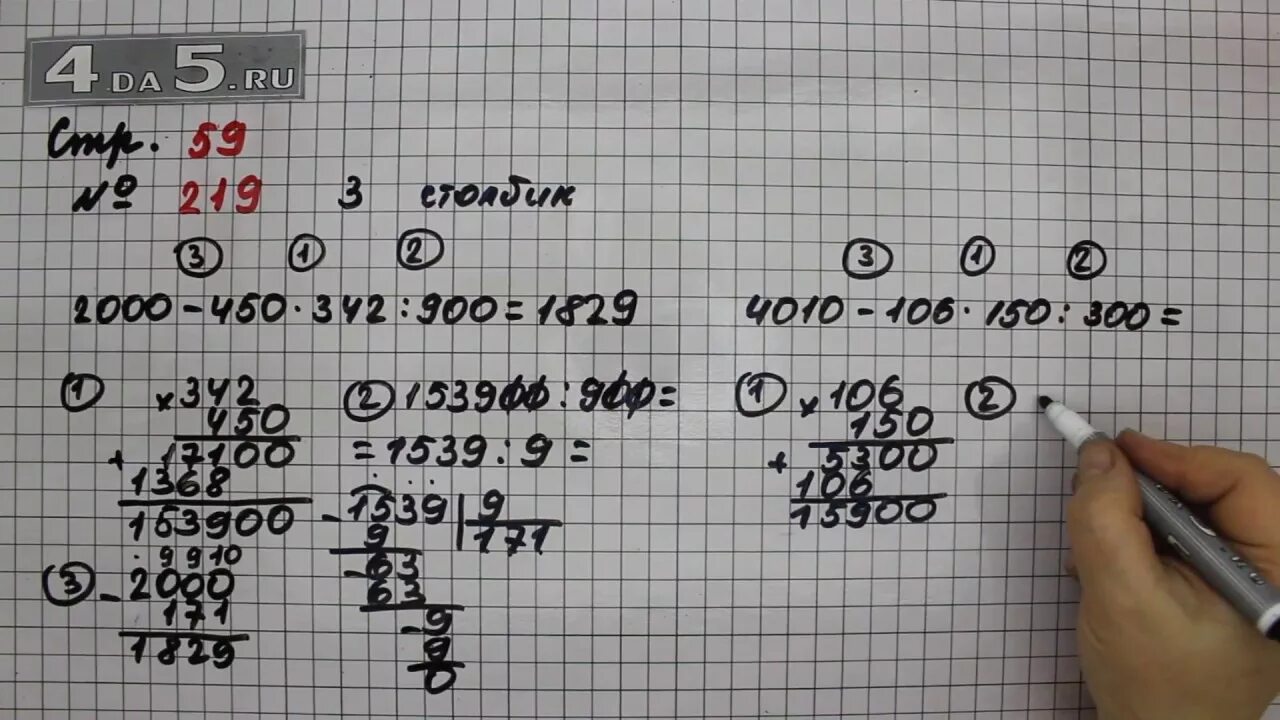 4DA5.RU
Стр. 59
№ 219 3 столбик
3 1 2
2000 - 450 · 342 : 900 = 1829
1
× 342
450
+ 17100
1368
153900
2 153900 : 900 =
= 1539 : 9 =
- 1539 | 9
9 171
- 63
63
- 9
9
0
3
. 9 9 10
- 2000
171
1829
3 1 2
4010 - 106 · 150 : 300 =
1
× 106
150
+ 5300
106
15900
2